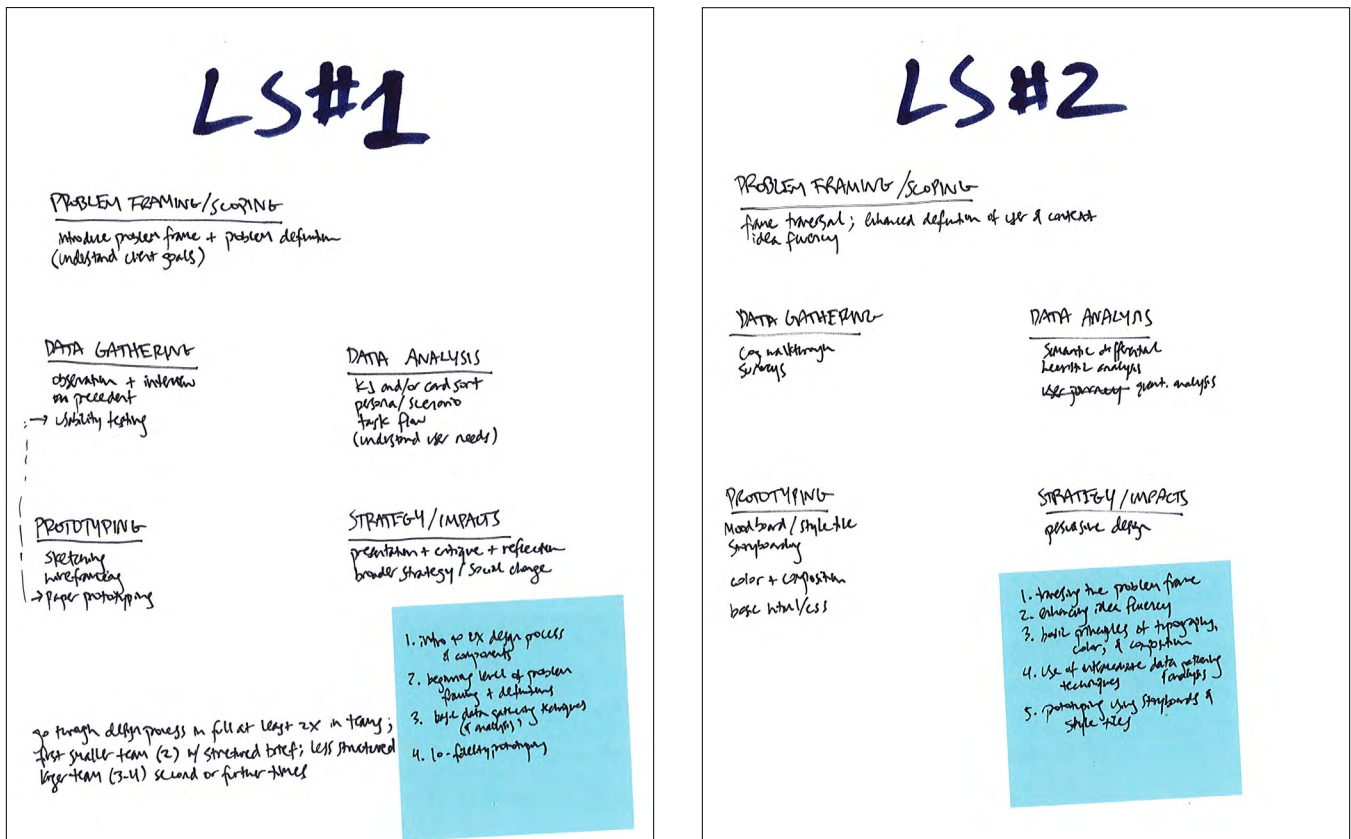 LS#1
PROBLEM FRAMING/SCOPING
introduce problem frame + problem definition
(understand client goals)
DATA GATHERING
observation + interview
on precedent
→ usability testing
DATA ANALYSIS
KJ and/or card sort
persona/scenario
task flow
(understand user needs)
PROTOTYPING
sketching
wireframing
→ paper prototyping
STRATEGY/IMPACTS
presentation + critique + reflection
broader strategy/social change
go through design process in full at least 2x in teams;
first smaller team (2) w/ structured brief; less structured
larger team (3-4) second or further times
1. intro to UX design process
& components
2. beginning level of problem
framing + definitions
3. basic data gathering techniques
(& analysis)
4. lo-fidelity prototyping
LS#2
PROBLEM FRAMING/SCOPING
frame traversal; enhanced definition of user & context
idea fluency
DATA GATHERING
cog walkthrough
surveys
DATA ANALYSIS
semantic differential
heuristic analysis
user journey quant. analysis
PROTOTYPING
Moodboard/style tile
storyboarding
color + composition
basic html/css
STRATEGY/IMPACTS
persuasive design
1. traversing the problem frame
2. enhancing idea fluency
3. basic principles of typography,
color, & composition
4. use of intermediate data gathering
techniques & analysis
5. prototyping using storyboards &
style tiles